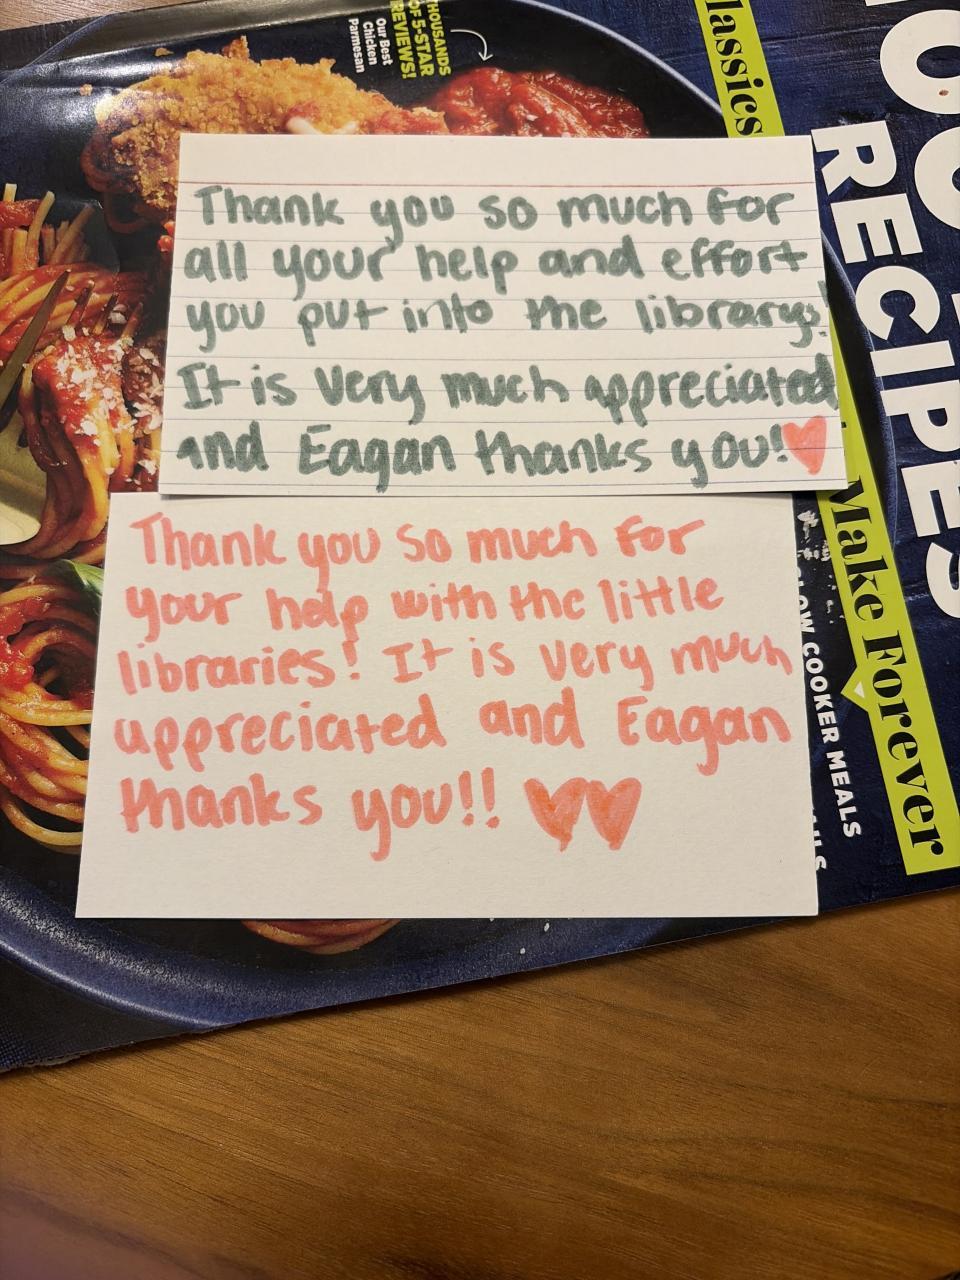 THOUSANDS
OF 5-STAR
REVIEWS!
Our Best
Chicken
Parmesan
lassics
RECIPES
Make Forever
SLOW COOKER MEALS
Thank you so much for
all your help and effort
you put into the library!
It is very much appreciated
and Eagan thanks you!
Thank you so much for
your help with the little
libraries! It is very much
appreciated and Eagan
thanks you!!